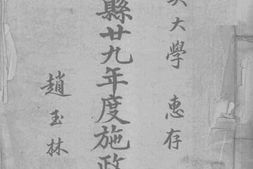 大學 惠存
縣廿九年度施政
趙玉林